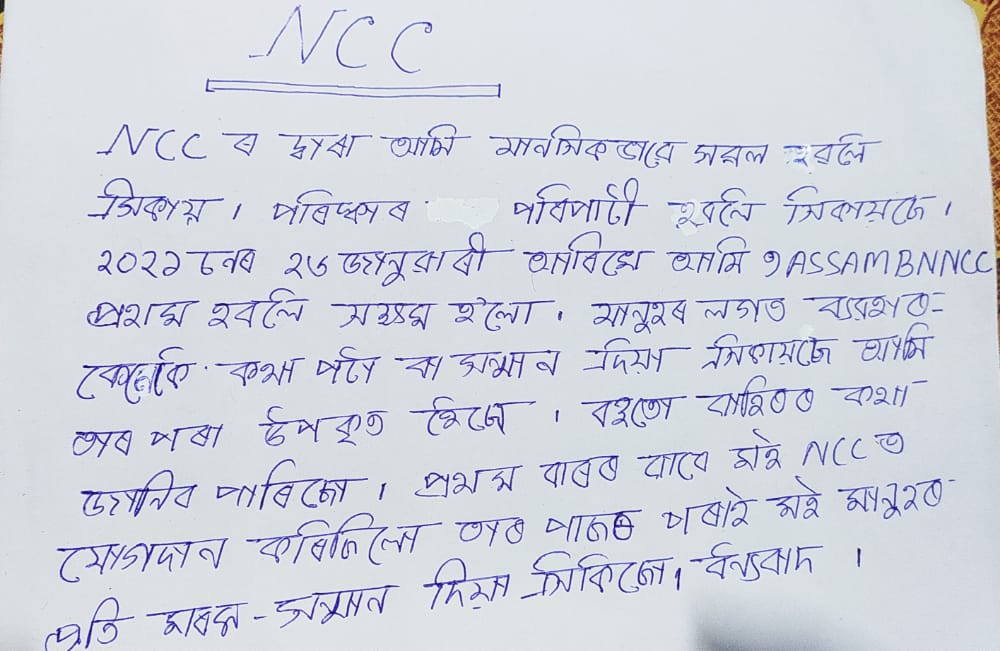 NCC
NCC ৰ দ্বাৰা আমি মানসিকভাৱে সবল হবলৈ
সিকায় । পৰিস্কাৰ পৰিপাটী হবলৈ সিকায়জে ।
২০২১ চনৰ ২৬ জানুৱাৰী তাৰিখে আমি ৭ ASSAM BN NCC
প্ৰথম হবলৈ সক্ষম হ'লো । মানুহৰ লগত ব্যৱহাৰ-
কেনেকৈ কথা পতে বা সন্মান দিয়া সিকায়জে আমি
তাৰ পৰা উপকৃত হৈজো । বহুতো বাহিৰৰ কথা
জানিব পাৰিজো । প্ৰথম বাৰৰ বাবে মই NCC ত
যোগদান কৰিজিলো তাৰ পাজৰ পৰাই মই মানুহৰ
প্ৰতি মৰম - সন্মান দিয়া সিকিজো, ধন্যবাদ ।